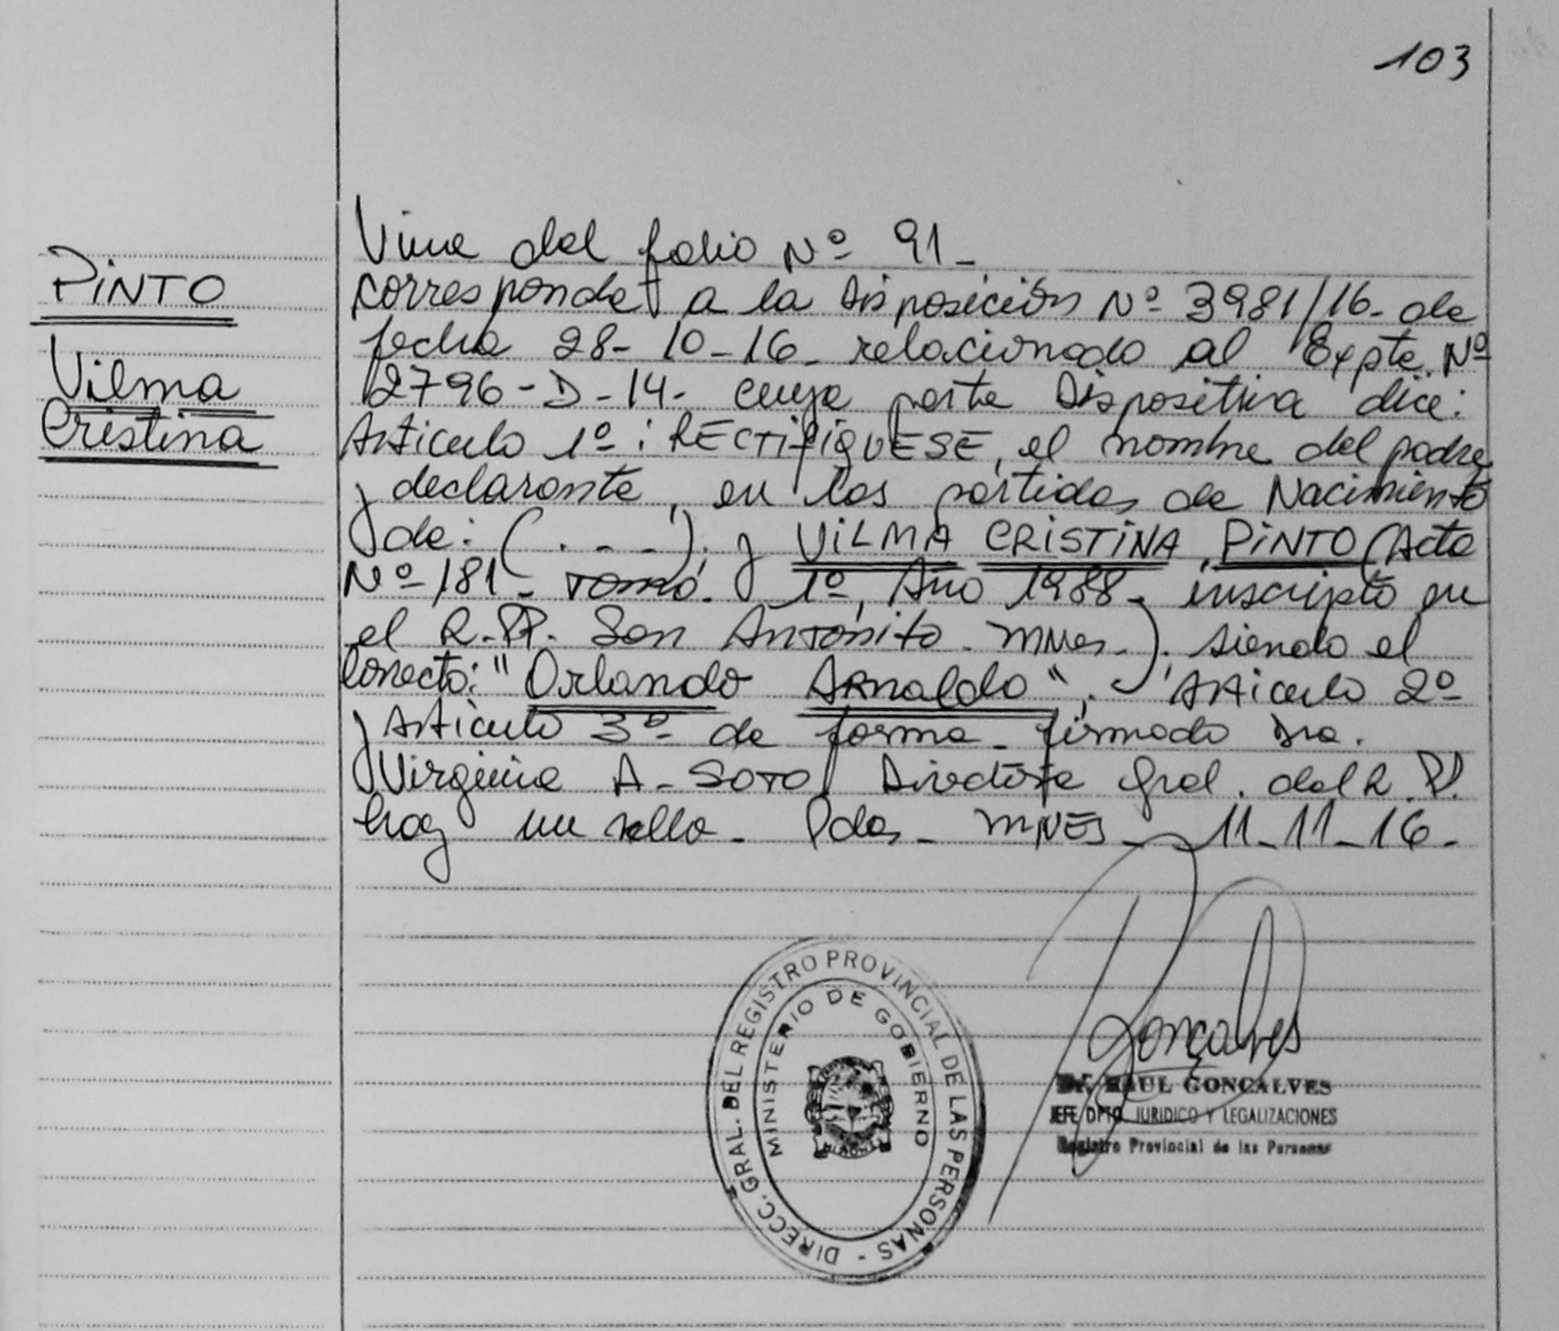 103
PiNTO
Vilma
Cristina
Viene del folio Nº 91-
Corresponde a la Disposición Nº 3981/16- de
fecha 28-10-16- relacionado al Expte. Nº
2796-D-14- cuya parte Dispositiva dice:
Articulo 1º: RECTiFiQUESE, el nombre del padre
y declarante, en las partidas de Nacimiento
de: (. - - -); y ViLMA CRiSTiNA PiNTO (Acta
Nº 181- Tomo- 1º, Año 1988- inscripto en
el R.PP. San Antonito- MNes-). siendo el
Correcto: "Orlando Arnaldo", Articulo 2º
y Articulo 3º- de forma- firmado Dra.
Virginia A- SOTO Directora Gral. del R.P.P.
hay un sello- Pdas- MNES- 11-11-16-
DIRECC. GRAL. DEL REGISTRO PROVINCIAL DE LAS PERSONAS -
MINISTERIO DE GOBIERNO
MISIONES
Gonçalves
Dr. RAUL GONCALVES
JEFE DPTO. JURIDICO Y LEGALIZACIONES
Registro Provincial de las Personas